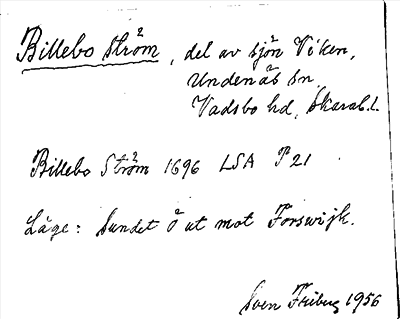 Billebo ström, del av sjön Viken,
Undenäs sn,
Vadsbo hd, Skarab.l.
Billebo Ström 1696 LSA P 21
Läge: Sundet Ö ut mot Forswijk.
Sven Friberg 1956